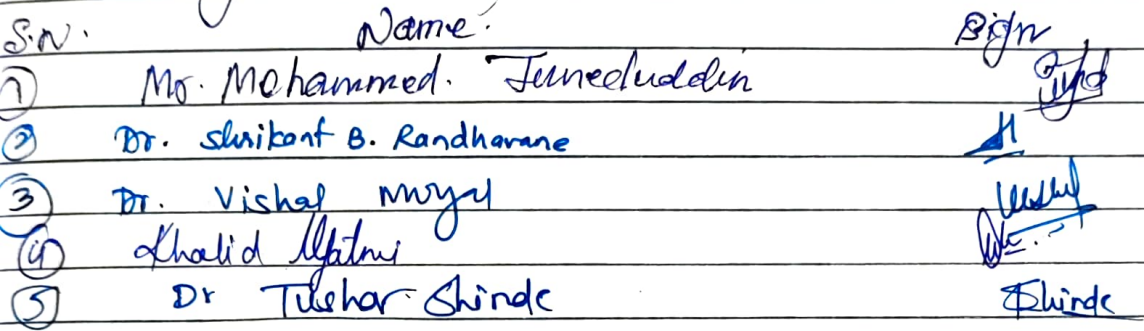 S.N. Name. Sign
1 Mr. Mohammed. Juneduddin
2 Dr. Shrikant B. Randhavane
3 Dr. Vishal
4 Khalid
5 Dr Tushar Shinde Shinde